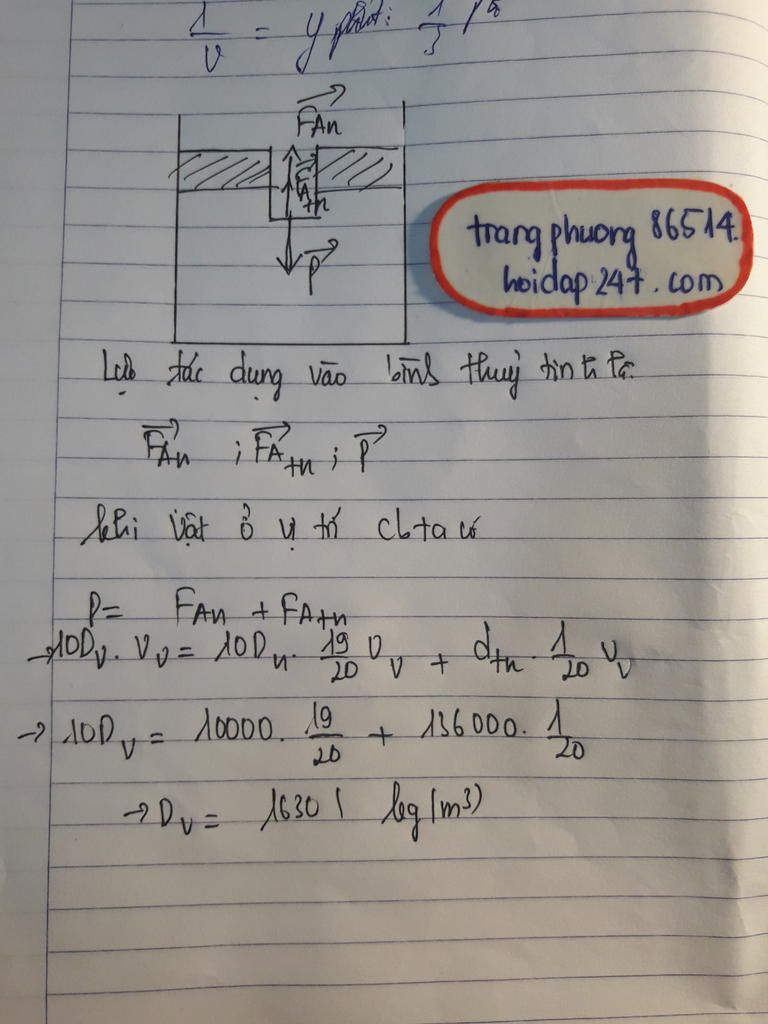 1/v = y phút: 1/3
F⃗An
F⃗A+n
P⃗
trangphuong 86514.
hoidap247.com
Lực tác dụng vào bình thuỷ tinh là
F⃗An ; F⃗A+n ; P⃗
khi vật ở vị trí cb ta có
P = FAn + FA+n
→ 10Dv. Vv = 10Dn. 19/20 Vv + d+n. 1/20 Vv
→ 10Dv = 10000. 19/20 + 136000. 1/20
→ Dv = 1630 ( kg/m³)